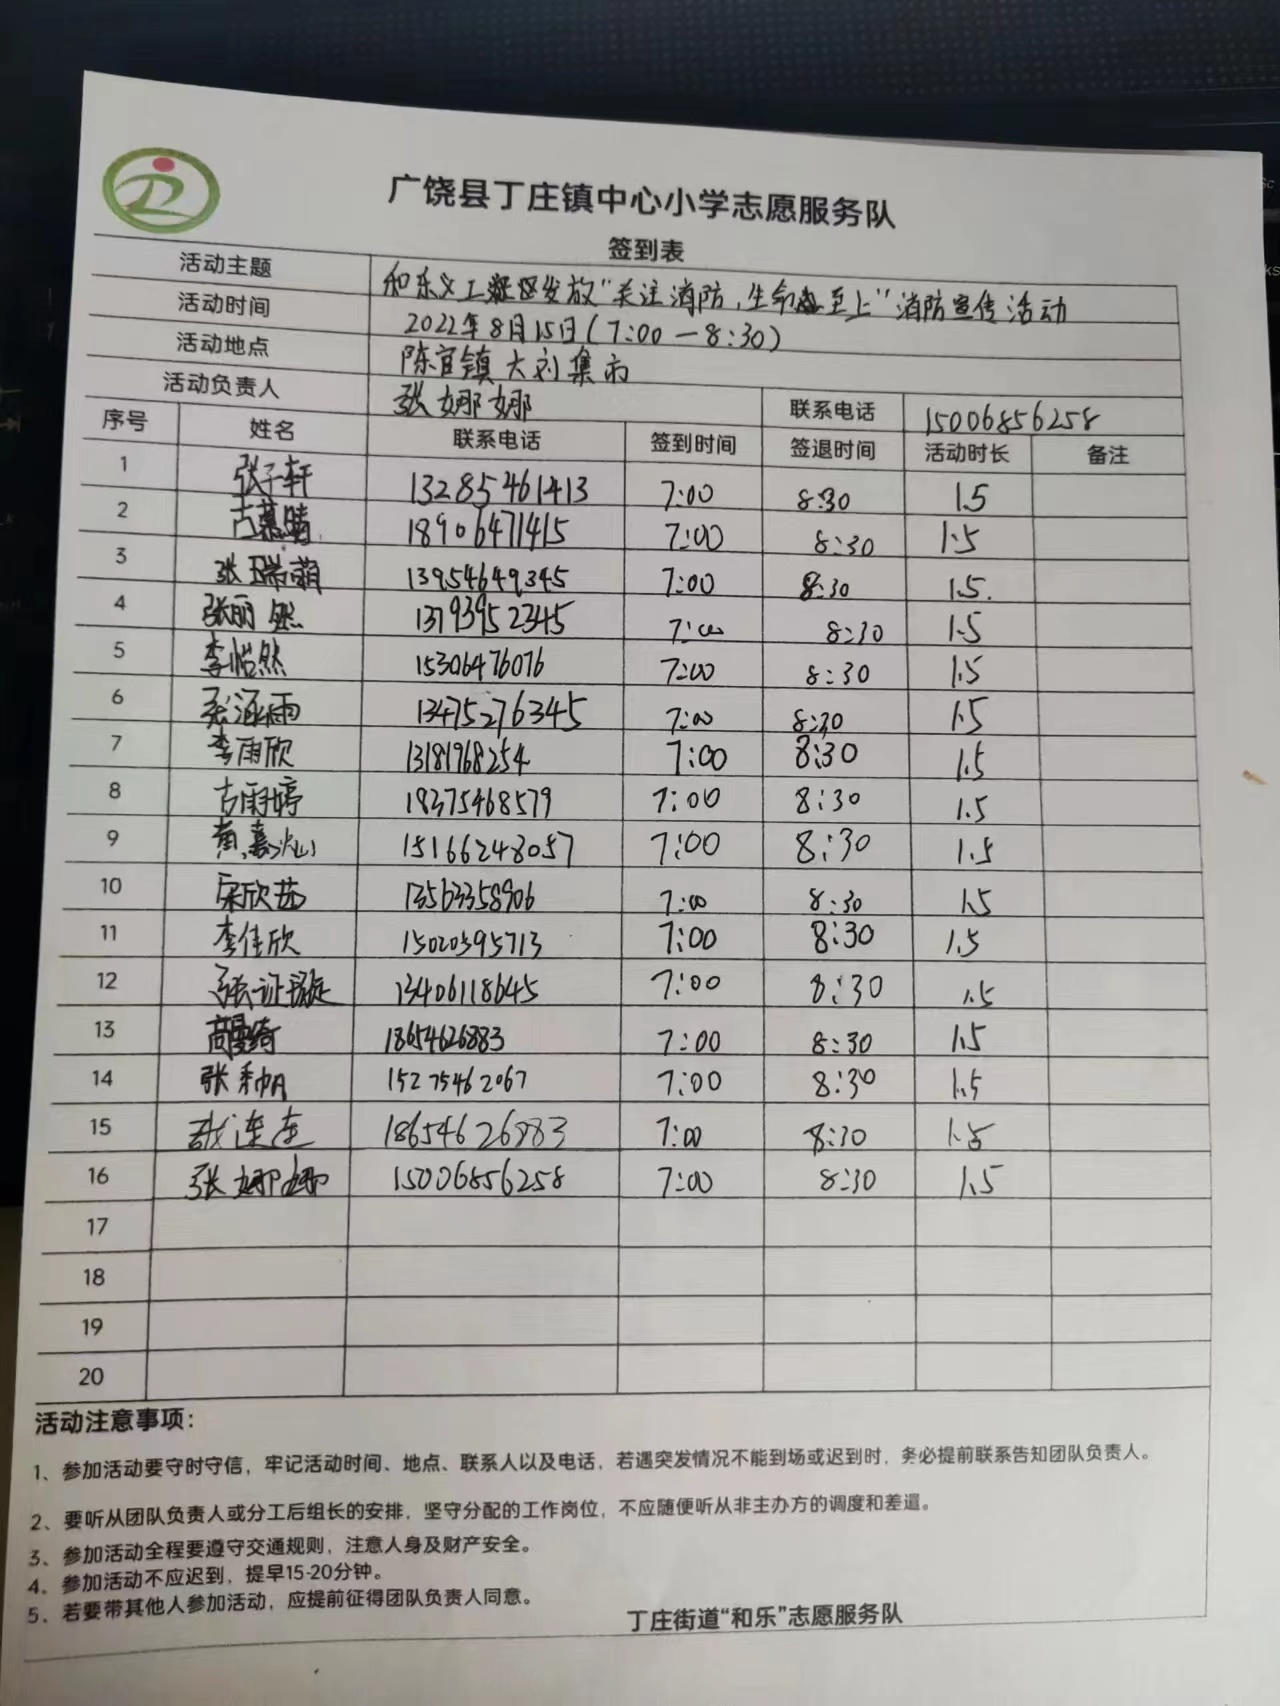 广饶县丁庄镇中心小学志愿服务队
签到表
活动主题 和乐义工社区发放“关注消防,生命至上”消防宣传活动
活动时间 2022年8月15日(7:00—8:30)
活动地点 陈官镇大刘集市
活动负责人 张娜娜 联系电话 15006856258
序号 姓名 联系电话 签到时间 签退时间 活动时长 备注
1 张子轩 13285461413 7:00 8:30 1.5
2 古慕晴 18906471415 7:00 8:30 1.5
3 张瑞萌 13954649345 7:00 8:30 1.5
4 张丽然 13793952345 7:00 8:30 1.5
5 李怡然 15306476076 7:00 8:30 1.5
6 张涵雨 13475276345 7:00 8:30 1.5
7 李雨欣 13181968254 7:00 8:30 1.5
8 古雨婷 18375468579 7:00 8:30 1.5
9 黄嘉 15166248057 7:00 8:30 1.5
10 宋欣茹 13563358906 7:00 8:30 1.5
11 李佳欣 15020395713 7:00 8:30 1.5
12 张证璇 13406118645 7:00 8:30 1.5
13 高曼绮 18654626883 7:00 8:30 1.5
14 张帆 15275462067 7:00 8:30 1.5
15 连连 18654626883 7:00 8:30 1.5
16 张娜娜 15006856258 7:00 8:30 1.5
17
18
19
20
活动注意事项:
1、参加活动要守时守信,牢记活动时间、地点、联系人以及电话,若遇突发情况不能到场或迟到时,务必提前联系告知团队负责人。
2、要听从团队负责人或分工后组长的安排,坚守分配的工作岗位,不应随便听从非主办方的调度和差遣。
3、参加活动全程要遵守交通规则,注意人身及财产安全。
4、参加活动不应迟到,提早15-20分钟。
5、若要带其他人参加活动,应提前征得团队负责人同意。
丁庄街道“和乐”志愿服务队